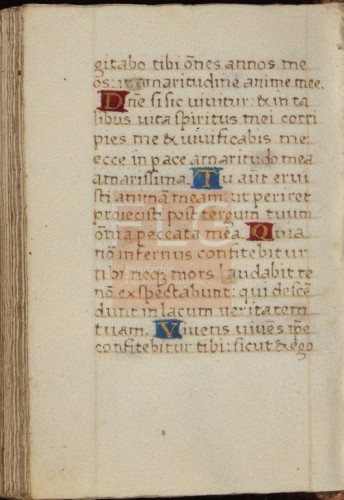 gitabo tibi oēs annos me
os: in amaritudine anime mee.
Dn̄e si sic vivitur: & in ta
libus vita spiritus mei corri
pies me & vivificabis me:
ecce in pace amaritudo mea
amarissima. Tu aūt erui
sti animā meam: ut periret
proiecisti post tergum tuum
oīnia peccata mēa. Quia
nō infernus confitebitur
tibi neq; mors laudabit te
nō exspectabunt: qui descē
dunt in lacum veritatem
tuam. Vivens vivēs ip̄e
confitebitur tibi: sicut & ego